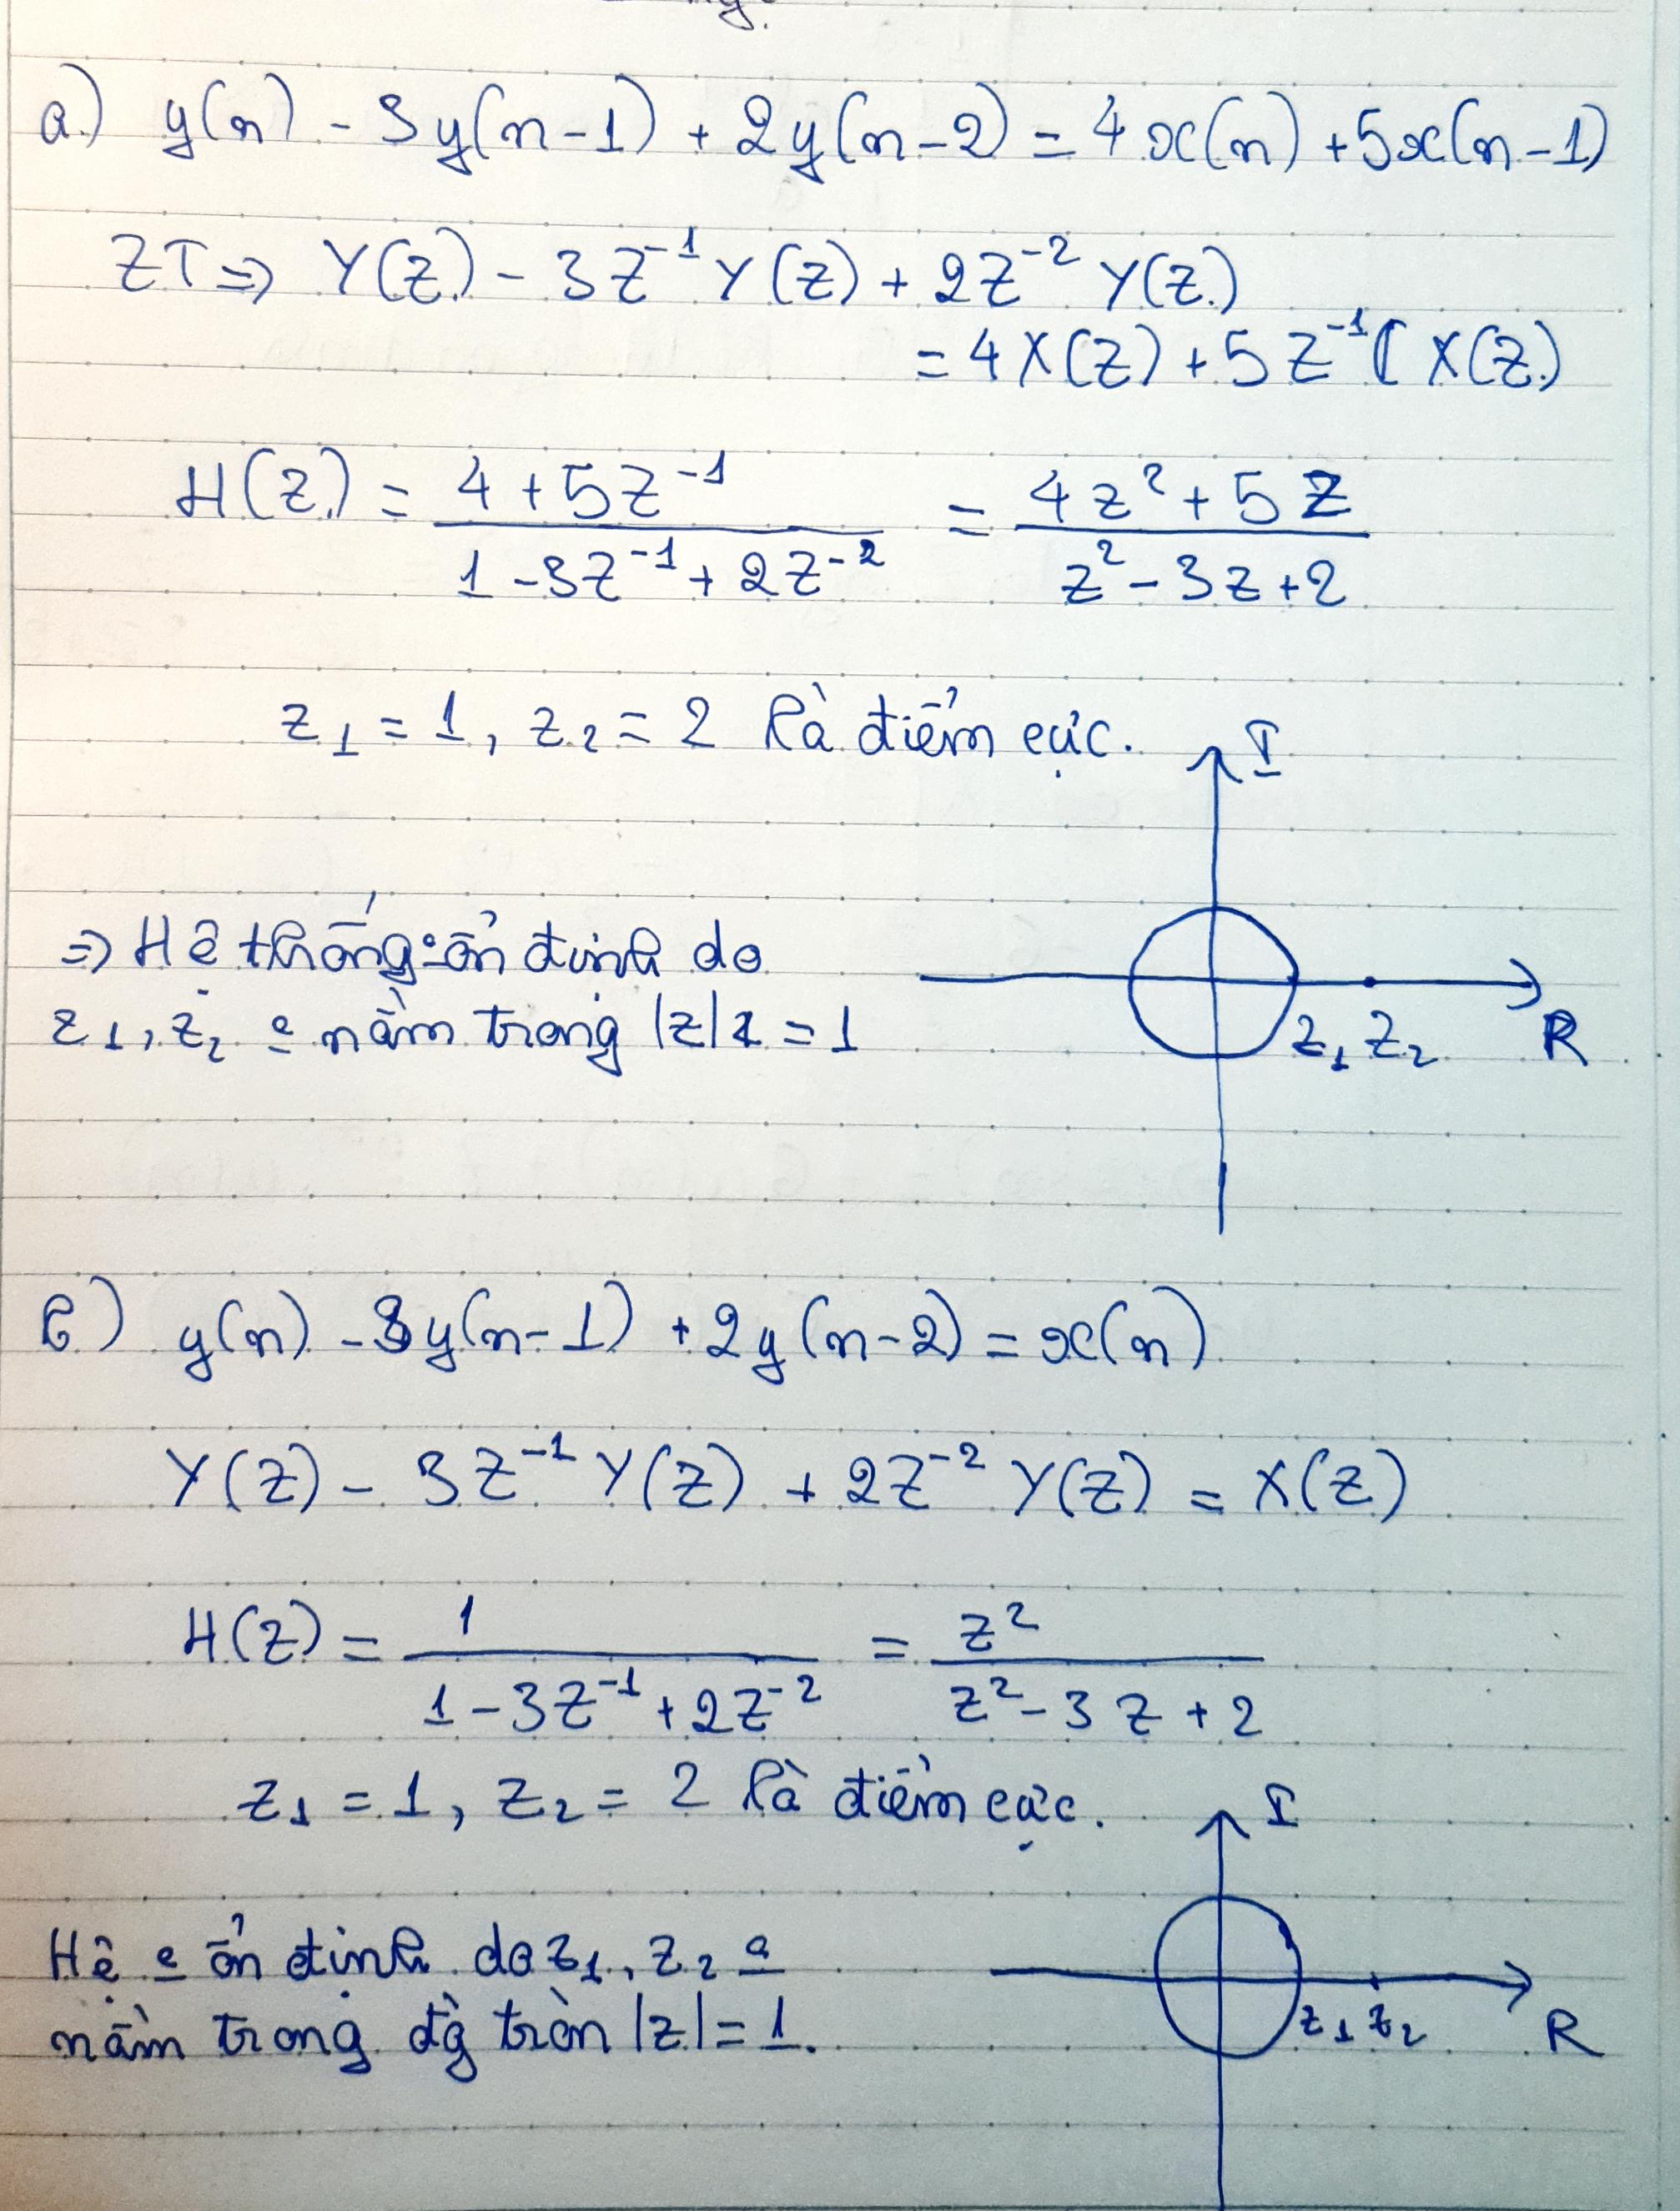 a) y(n) - 3y(n-1) + 2y(n-2) = 4x(n) + 5x(n-1)
ZT => Y(Z) - 3Z⁻¹Y(Z) + 2Z⁻² Y(Z)
= 4X(Z) + 5Z⁻¹ X(Z)
H(Z) = (4 + 5Z⁻¹)/(1 - 3Z⁻¹ + 2Z⁻²) = (4z² + 5z)/(z² - 3z + 2)
z₁ = 1, z₂ = 2 là điểm cực.
I
=> Hệ thống ổn định do
z₁, z₂ nằm trong |z| = 1
z₁ z₂ R
b) y(n) - 3y(n-1) + 2y(n-2) = x(n)
Y(Z) - 3Z⁻¹Y(Z) + 2Z⁻² Y(Z) = X(Z)
H(Z) = 1/(1 - 3Z⁻¹ + 2Z⁻²) = z²/(z² - 3z + 2)
z₁ = 1, z₂ = 2 là điểm cực.
I
Hệ ổn định do z₁, z₂
nằm trong đg tròn |z| = 1.
z₁ z₂ R